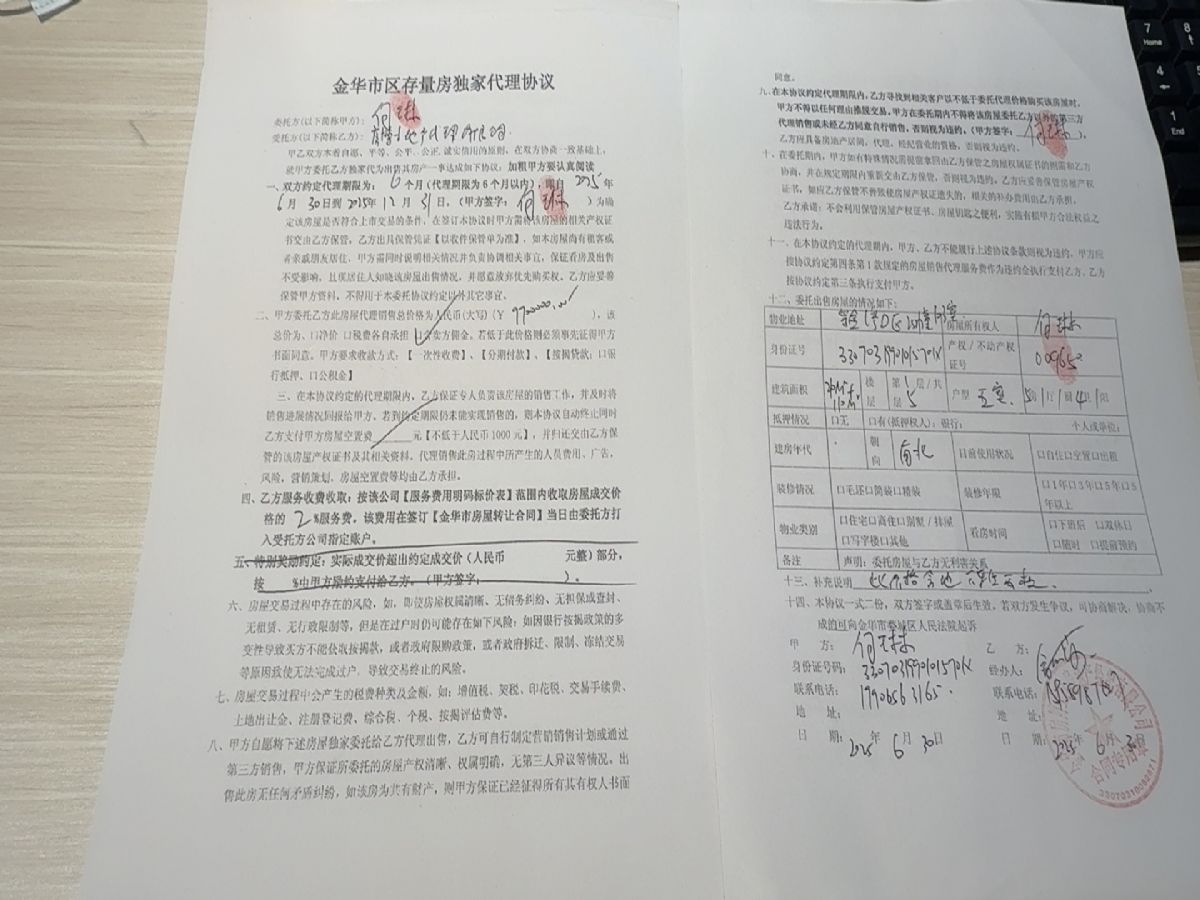 金华市区存量房独家代理协议
委托方(以下简称甲方):
受托方(以下简称乙方):
甲乙双方本着自愿、平等、公平、公正、诚实信用的原则，在双方协商一致基础上，
就甲方委托乙方独家代为出售其房产一事达成如下协议：加粗甲方要认真阅读
一、双方约定代理期限为：6个月(代理期限为6个月以内)，即自2025年
6月30日到2025年12月31日，(甲方签字： )为确
定该房屋是否符合上市交易的条件，在签订本协议时甲方需将该房屋的相关产权证
书交由乙方保管，乙方出具保管凭证【以收件保管单为准】，如本房屋尚有租客或
者亲戚朋友居住，甲方需同时说明相关情况并负责协调相关事宜，保证看房及出售
不受影响，且现居住人知晓该房屋出售情况，并愿意放弃优先购买权。乙方应妥善
保管甲方资料，不得用于本委托协议约定以外其它事宜。
二、甲方委托乙方此房屋代理销售总价格为人民币(大写)(￥9900000.00 )，该
总价为、口净价 口税费各自承担 口含卖方佣金。若低于此价格则必须事先征得甲方
书面同意。甲方要求收款方式：【一次性收费】、【分期付款】、【按揭贷款：口银
行抵押、口公积金】
三、在本协议约定的代理期限内，乙方保证专人负责该房屋的销售工作，并及时将
销售进展情况回报给甲方。若到约定期限仍未能实现销售的，则本协议自动终止同时
乙方支付甲方房屋空置费 元【不低于人民币1000元】，并归还交由乙方保
管的该房屋产权证书及其相关资料。代理销售此房过程中所产生的人员费用、广告，
风险，营销策划，房屋空置费等均由乙方承担。
四、乙方服务收费收取：按该公司【服务费用明码标价表】范围内收取房屋成交价
格的2%服务费。该费用在签订【金华市房屋转让合同】当日由委托方打
入受托方公司指定账户。
五、特别奖励约定：实际成交价超出约定成交价（人民币 元整）部分，
按 %由甲方励约支付给乙方。（甲方签字： ）。
六、房屋交易过程中存在的风险，如，即使房屋权属清晰、无债务纠纷、无担保或查封、
无租赁、无行政限制等，但是在过户时仍可能存在如下风险：如因银行按揭政策的多
变性导致买方不能获取按揭款，或者政府限购政策，或者政府拆迁、限制、冻结交易
等原因致使无法完成过户，导致交易终止的风险。
七、房屋交易过程中会产生的税费种类及金额，如：增值税、契税、印花税、交易手续费、
土地出让金、注册登记费、综合税、个税、按揭评估费等。
八、甲方自愿将下述房屋独家委托给乙方代理出售，乙方可自行制定营销销售计划或通过
第三方销售，甲方保证所委托的房屋产权清晰、权属明确，无第三人异议等情况。出
售此房无任何矛盾纠纷，如该房为共有财产，则甲方保证已经征得所有其有权人书面
同意。
九、在本协议约定代理期限内，乙方寻找到相关客户以不低于委托代理价格购买该房屋时，
甲方不得以任何理由推脱交易，甲方在委托期内不得将该房屋委托乙方以外的第三方
代理销售或未经乙方同意自行销售，否则视为违约。(甲方签字： )
乙方应具备房地产居间，代理，经纪营业的资格，否则视为违约。
十、在委托期内，甲方如有特殊情况需提前拿回由乙方保管之房屋权属证书的照需和乙方
协商，并在规定期限内重新交由乙方保管，否则视为违约。乙方应妥善保管房屋产权
证书，如应乙方保管不善致使房屋产权证遗失的，相关的补办费用由乙方承担。
乙方承诺：不会利用保管房屋产权证书、房屋钥匙之便利，实施有损甲方合法权益之
违法行为。
十一、在本协议约定的代理期内，甲方、乙方不能履行上述协议条款则视为违约。甲方应
按协议约定第四条第1款规定的房屋销售代理服务费作为违约金执行支付乙方。乙方
按协议约定第三条执行支付甲方。
十二、委托出售房屋的情况如下：
物业地址 房屋所有权人
身份证号 产权/不动产权证号
建筑面积 楼层 第1层/共5层 户型
抵押情况 口无 口有(抵押权人)：银行： 个人或单位：
建房年代 朝向 南北 目前使用状况 口自住口空置口出租
装修情况 口毛坯口简装口精装 装修年限 口1年口3年口5年口5年以上
物业类别 口住宅口商住口别墅/排屋 口写字楼口其他 看房时间 口下班后 口双休日 口随时 口提前预约
备注 声明：委托房屋与乙方无利害关系
十三、补充说明
十四、本协议一式二份，双方签字或盖章后生效，若双方发生争议，可协商解决，协商不
成的可向金华市婺城区人民法院起诉
甲 方： 乙 方：
身份证号码： 经办人：
联系电话： 联系电话：
地 址： 地 址：
日 期：2025年6月30日 日 期：2025年6月30日
合同专用章